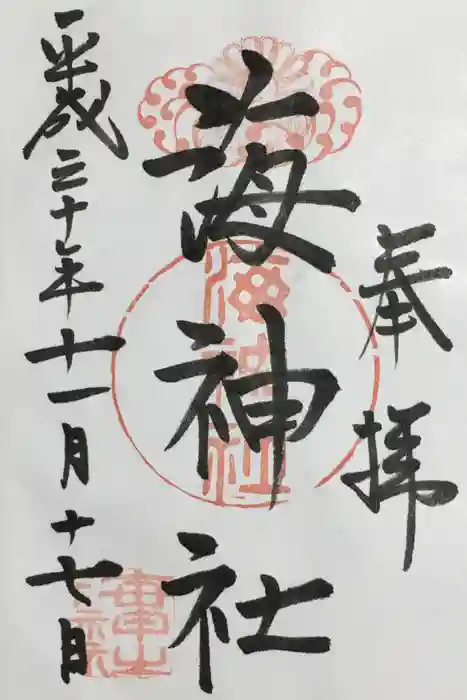 奉拝
海神社
平成三十年十一月十七日
海神社